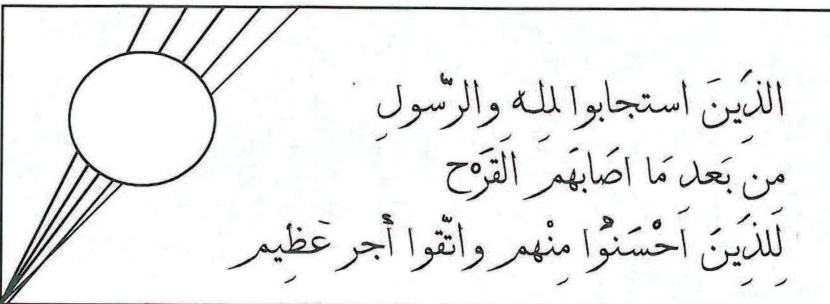 الذِينَ استجابوا لِلّه والرّسولِ
من بَعد مَا اصَابَهَم القَرْح
لِلذِينَ اَحْسَنُوا مِنْهم واتّقوا أَجر عَظِيم